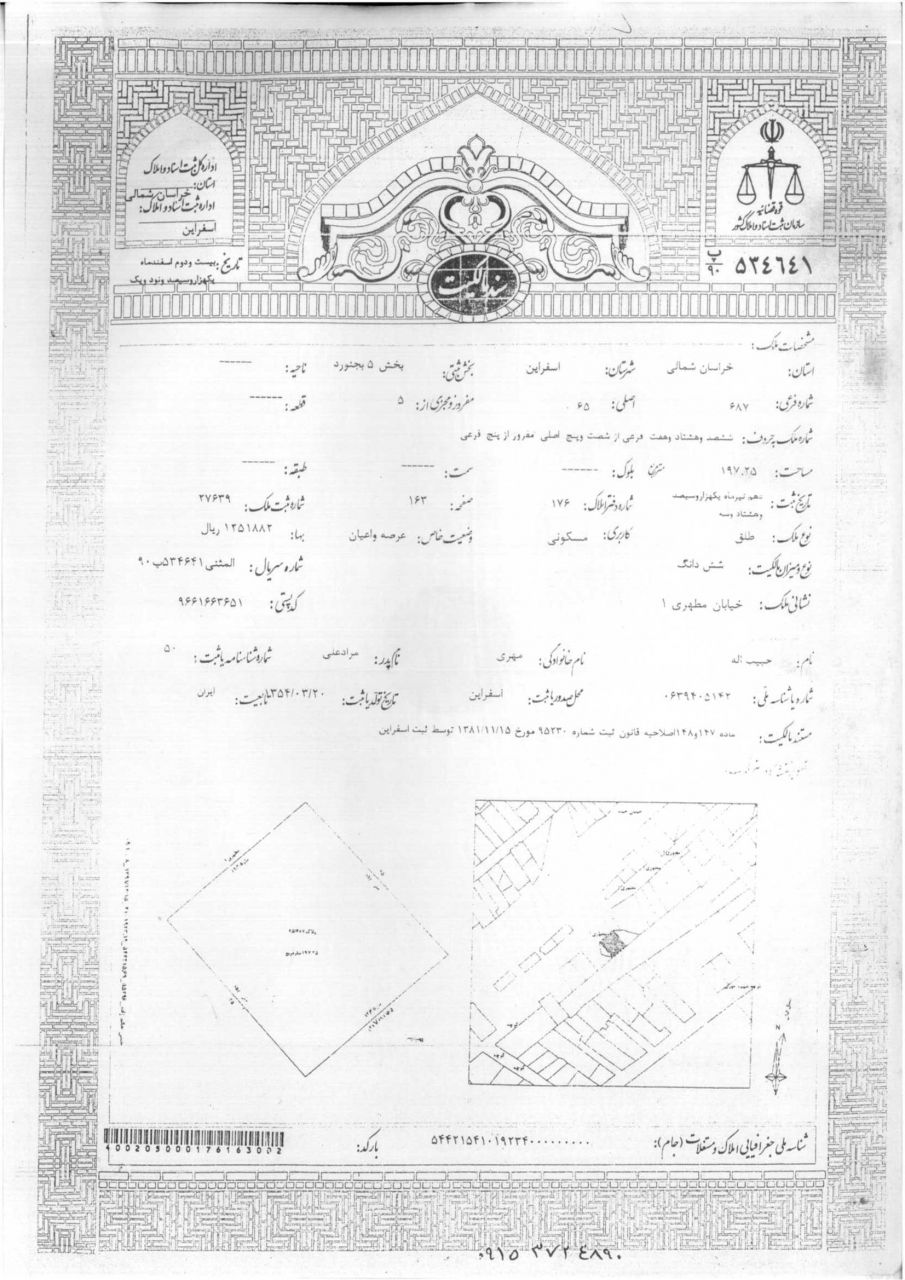 قوه قضائیه
سازمان ثبت اسناد و املاک کشور
۵۳۴۶۴۱ ب ۹۰
سند مالکیت
اداره کل ثبت اسناد و املاک
استان:
خراسان شمالی
اداره ثبت اسناد و املاک:
اسفراین
تاریخ: بیست ودوم اسفندماه
یکهزاروسیصد ونود ویک
مشخصات ملک:
استان: خراسان شمالی شهرستان: اسفراین بخش ثبتی: بخش ۵ بجنورد ناحیه: ------
شماره فرعی: ۶۸۷ اصلی: ۶۵ مفروز و مجزی از: ۵ قطعه: ------
شماره ملک به حروف: ششصد وهشتاد وهفت فرعی از شصت وپنج اصلی مفروز از پنج فرعی
مساحت: ۱۹۷.۲۵ بلوک: ------ سمت: ------ طبقه: ------
تاریخ ثبت: دهم تیرماه یکهزاروسیصد وهشتاد وسه شماره دفتر املاک: ۱۷۶ صفحه: ۱۶۳ شماره ثبت ملک: ۲۷۶۳۹
نوع ملک: طلق کاربری: مسکونی وضعیت خاص: عرصه واعیان بها: ۱۲۵۱۸۸۲ ریال
نوع و میزان مالکیت: شش دانگ شماره سریال: المثنی ۵۳۴۶۴۱ب۹۰
نشانی ملک: خیابان مطهری ۱ کد پستی: ۹۶۶۱۶۶۳۶۵۱
نام: حبیب اله نام خانوادگی: مهری نام پدر: مرادعلی شماره شناسنامه یا ثبت: ۵۰
شماره یا شناسه ملی: ۰۶۳۹۴۰۵۱۴۲ محل صدور یا ثبت: اسفراین تاریخ تولد یا ثبت: ۱۳۵۴/۰۳/۲۰ تابعیت: ایران
مستند مالکیت: ماده ۱۴۷و۱۴۸اصلاحیه قانون ثبت شماره ۹۵۲۳۰ مورخ ۱۳۸۱/۱۱/۱۵ توسط ثبت اسفراین
N
شناسه ملی جغرافیایی املاک و مستغلات (جام): ۵۴۴۲۱۵۴۱۰۱۹۲۳۴۰۰۰۰۰۰۰۰۰
بارکد:
400205000176163002
۰۹۱۵ ۳۷۲ ۴۸۹۰